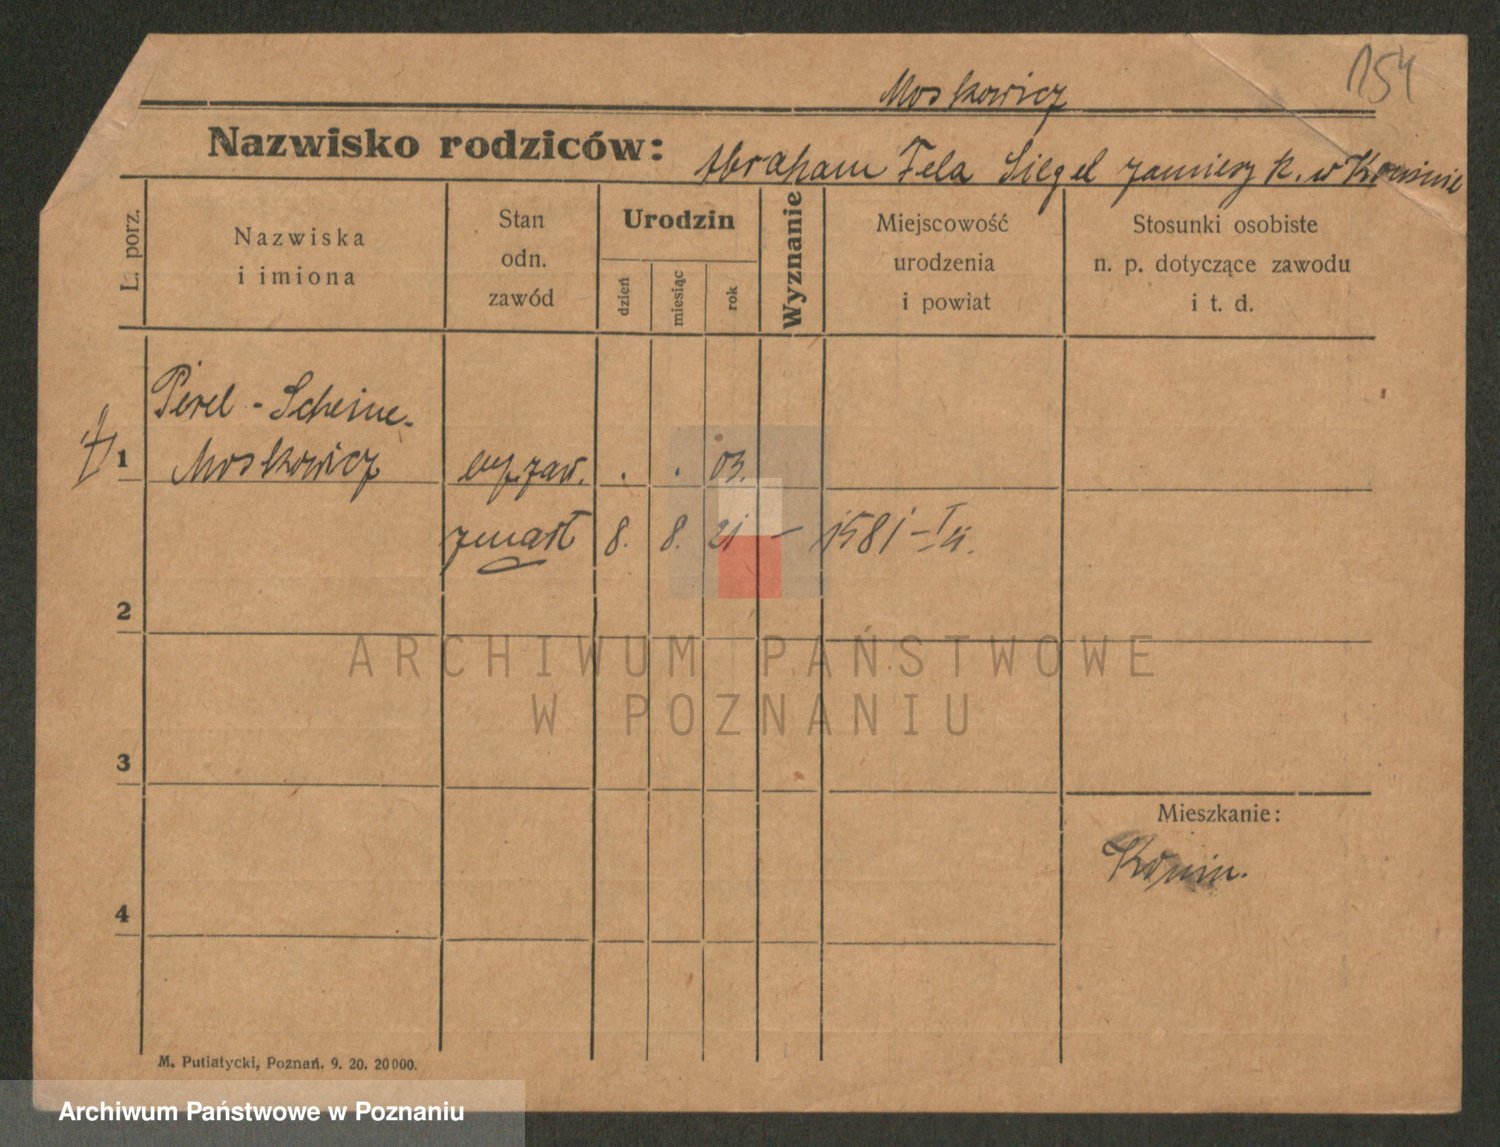 154
Moskowicz
Nazwisko rodziców: Abraham Fela Siegel zamieszk. w Koninie
L. porz.
Nazwiska
i imiona
Stan
odn.
zawód
Urodzin
dzień
miesiąc
rok
Wyznanie
Miejscowość
urodzenia
i powiat
Stosunki osobiste
n. p. dotyczące zawodu
i t. d.
Perel - Scheine -
1 Moskowicz . . 03.
zmarł 8. 8. 21 – 1581
2
ARCHIWUM PAŃSTWOWE
W POZNANIU
3
Mieszkanie:
Konin.
4
M. Putiatycki, Poznań. 9. 20. 20000.
Archiwum Państwowe w Poznaniu